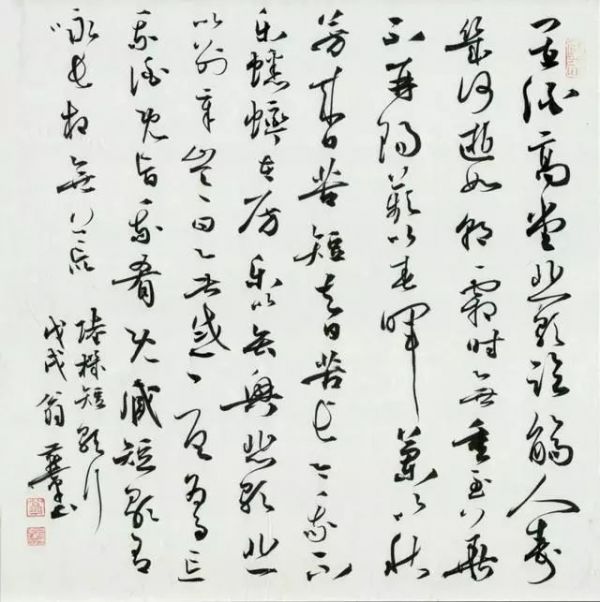 置酒高堂悲歌臨觴人壽
幾何逝如朝霜時無重至華
不再陽蘋以春暉蘭以秋
芳來日苦短去日苦長今我不
樂蟋蟀在房樂以會興悲歌悲
以別章豈曰無感憂為忘
我酒既旨我肴既臧短歌有
詠長夜無荒
陸機短歌行
戊戌翁書